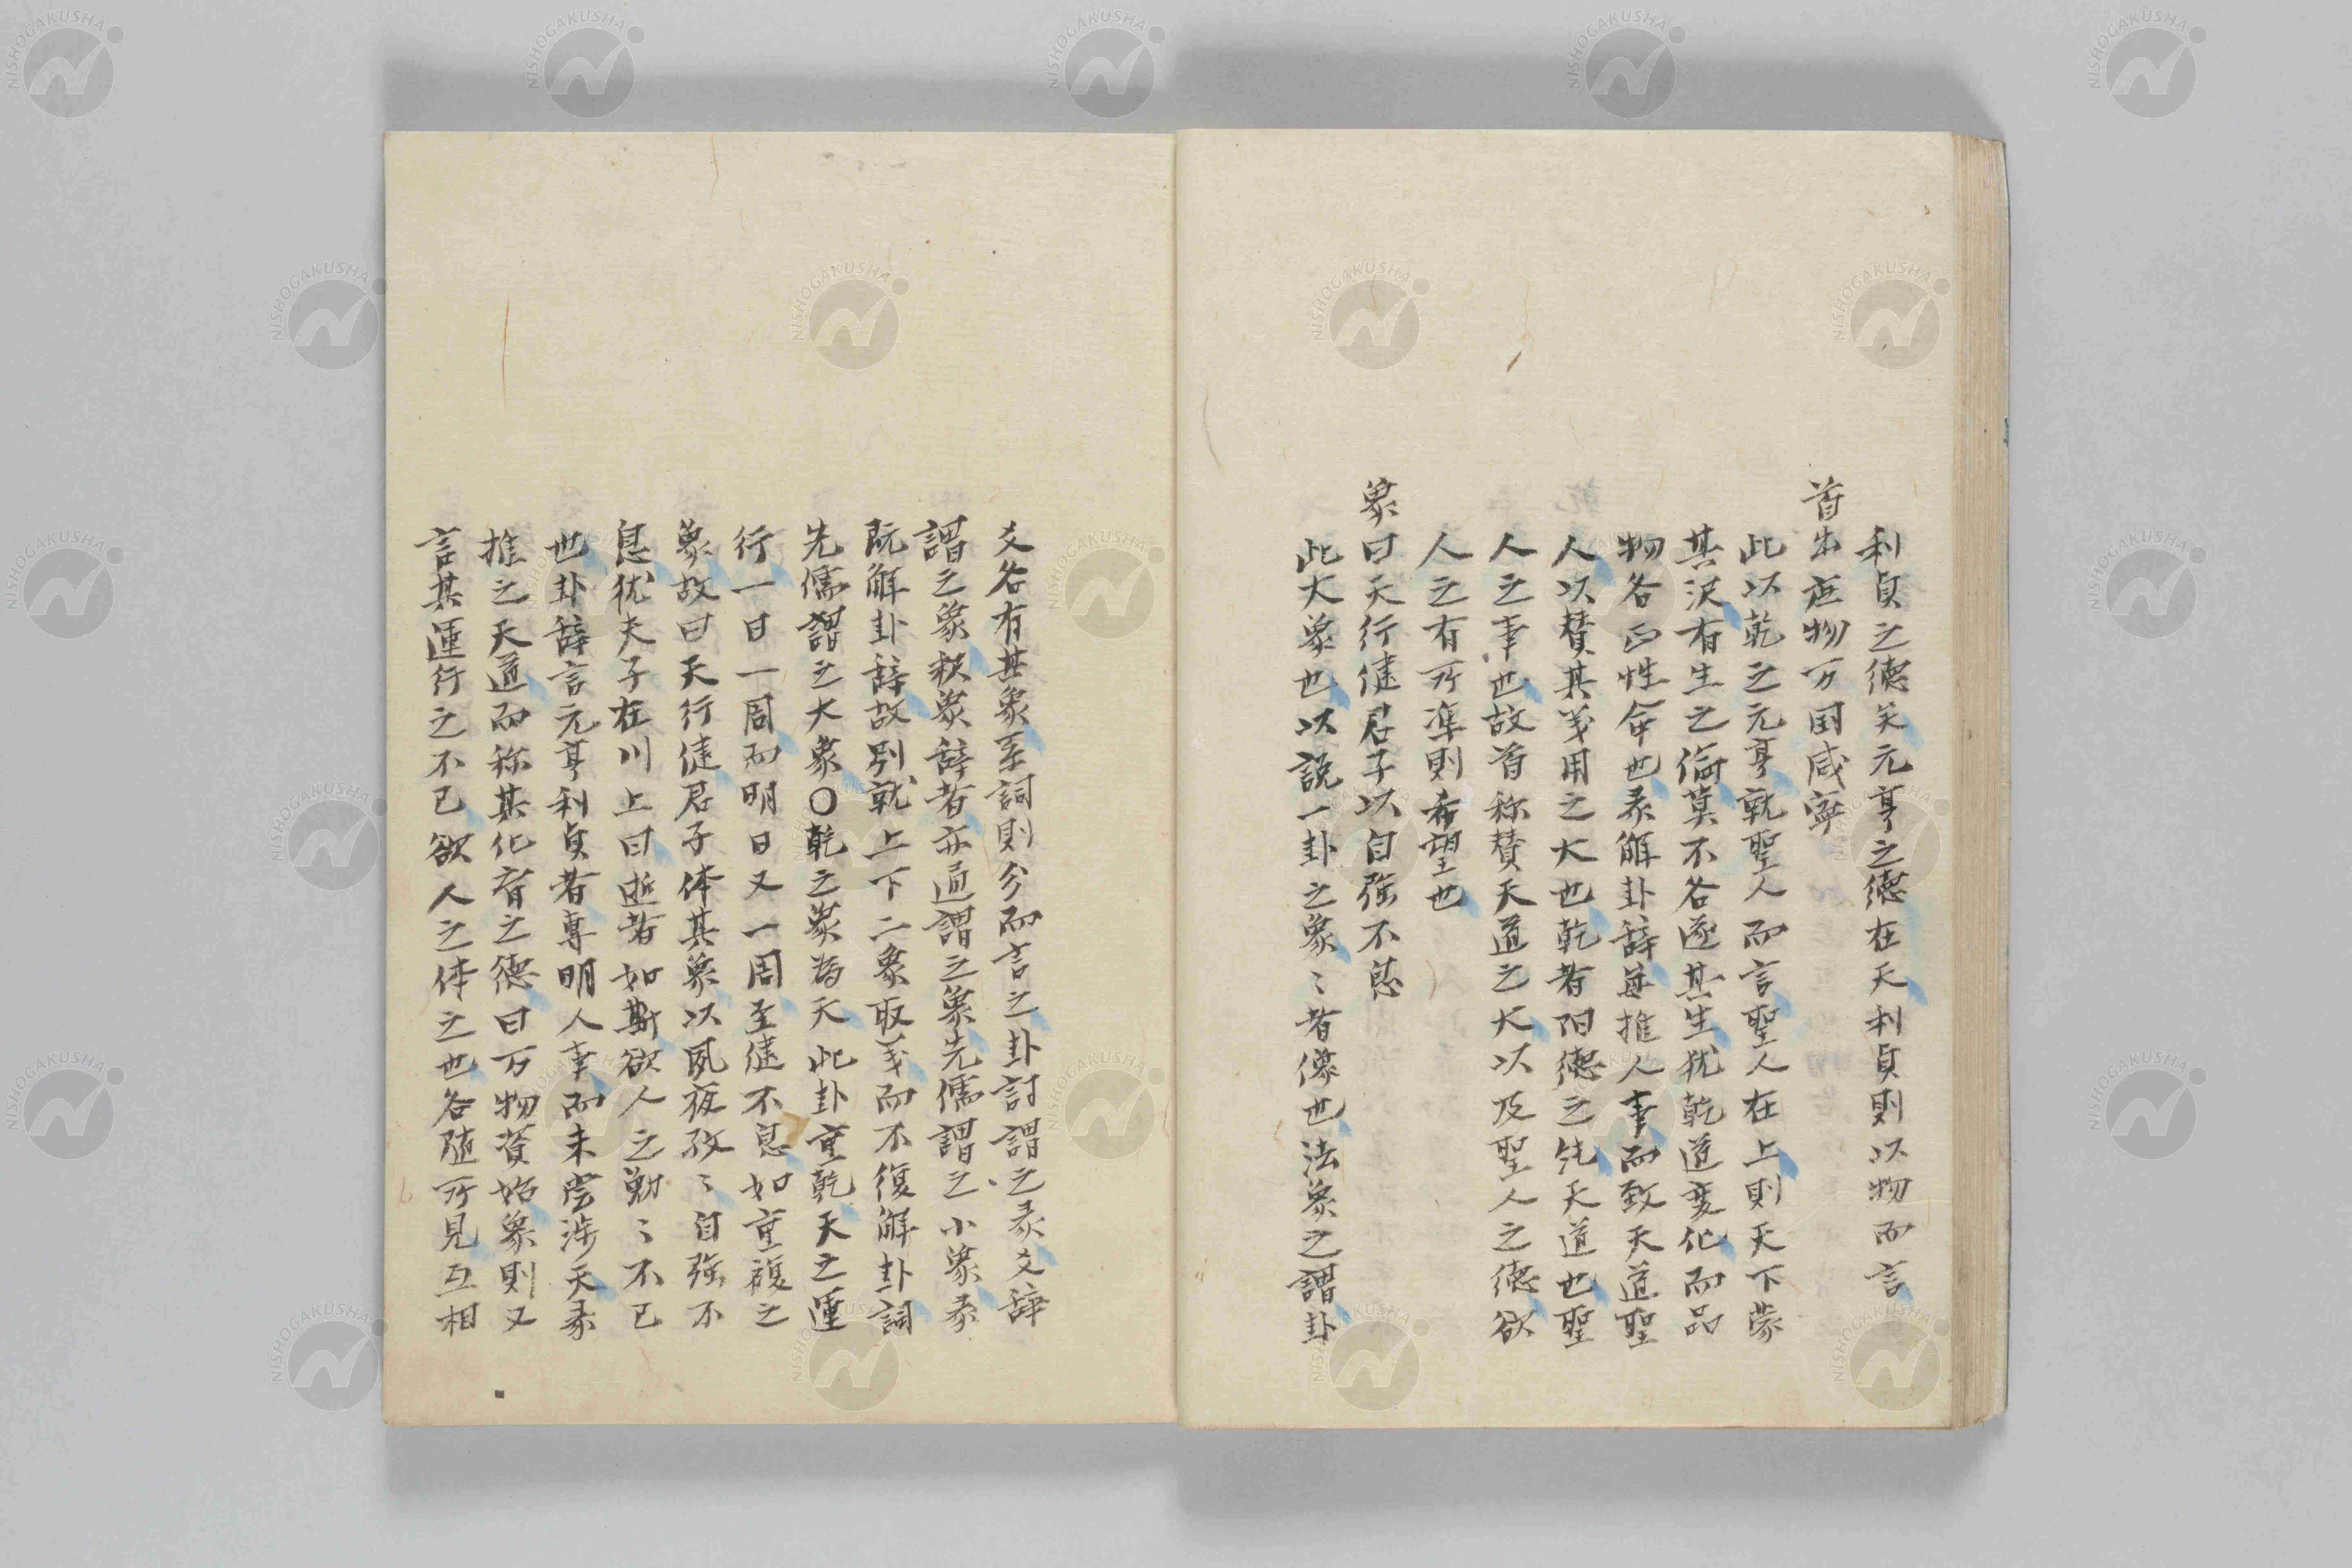 利貞之德矣元亨之德在天利貞則以物而言
首出庶物万国咸寧
此以乾之元亨就聖人而言聖人在上則天下蒙
其沢有生之倫莫不各遂其生犹乾道変化而品
物各正性命也彖解卦辞每推人事而致天道聖
人以賛其義用之大也乾者陽德之純天道也聖
人之事也故首称賛天道之大以及聖人之德欲
人之有所準則希望也
象曰天行健君子以自強不息
此大象也以説一卦之象〻者像也法象之謂卦
爻各有其象系詞則分而言之卦討謂之彖爻辞
謂之象釈彖辞者亦通謂之象先儒謂之小象彖
既解卦辞故別就上下二象取義而不復解卦詞
先儒謂之大象〇乾之象為天此卦重乾天之運
行一日一周而明日又一周至健不息如重複之
象故曰天行健君子体其象以夙夜孜〻自強不
息犹夫子在川上曰逝者如斯欲人之勤〻不已
也卦辞言元亨利貞者専明人事而未嘗渉天彖
推之天道而称其化育之德曰万物資始象則又
言其運行之不已欲人之体之也各随所見互相
NISHOGAKUSHA